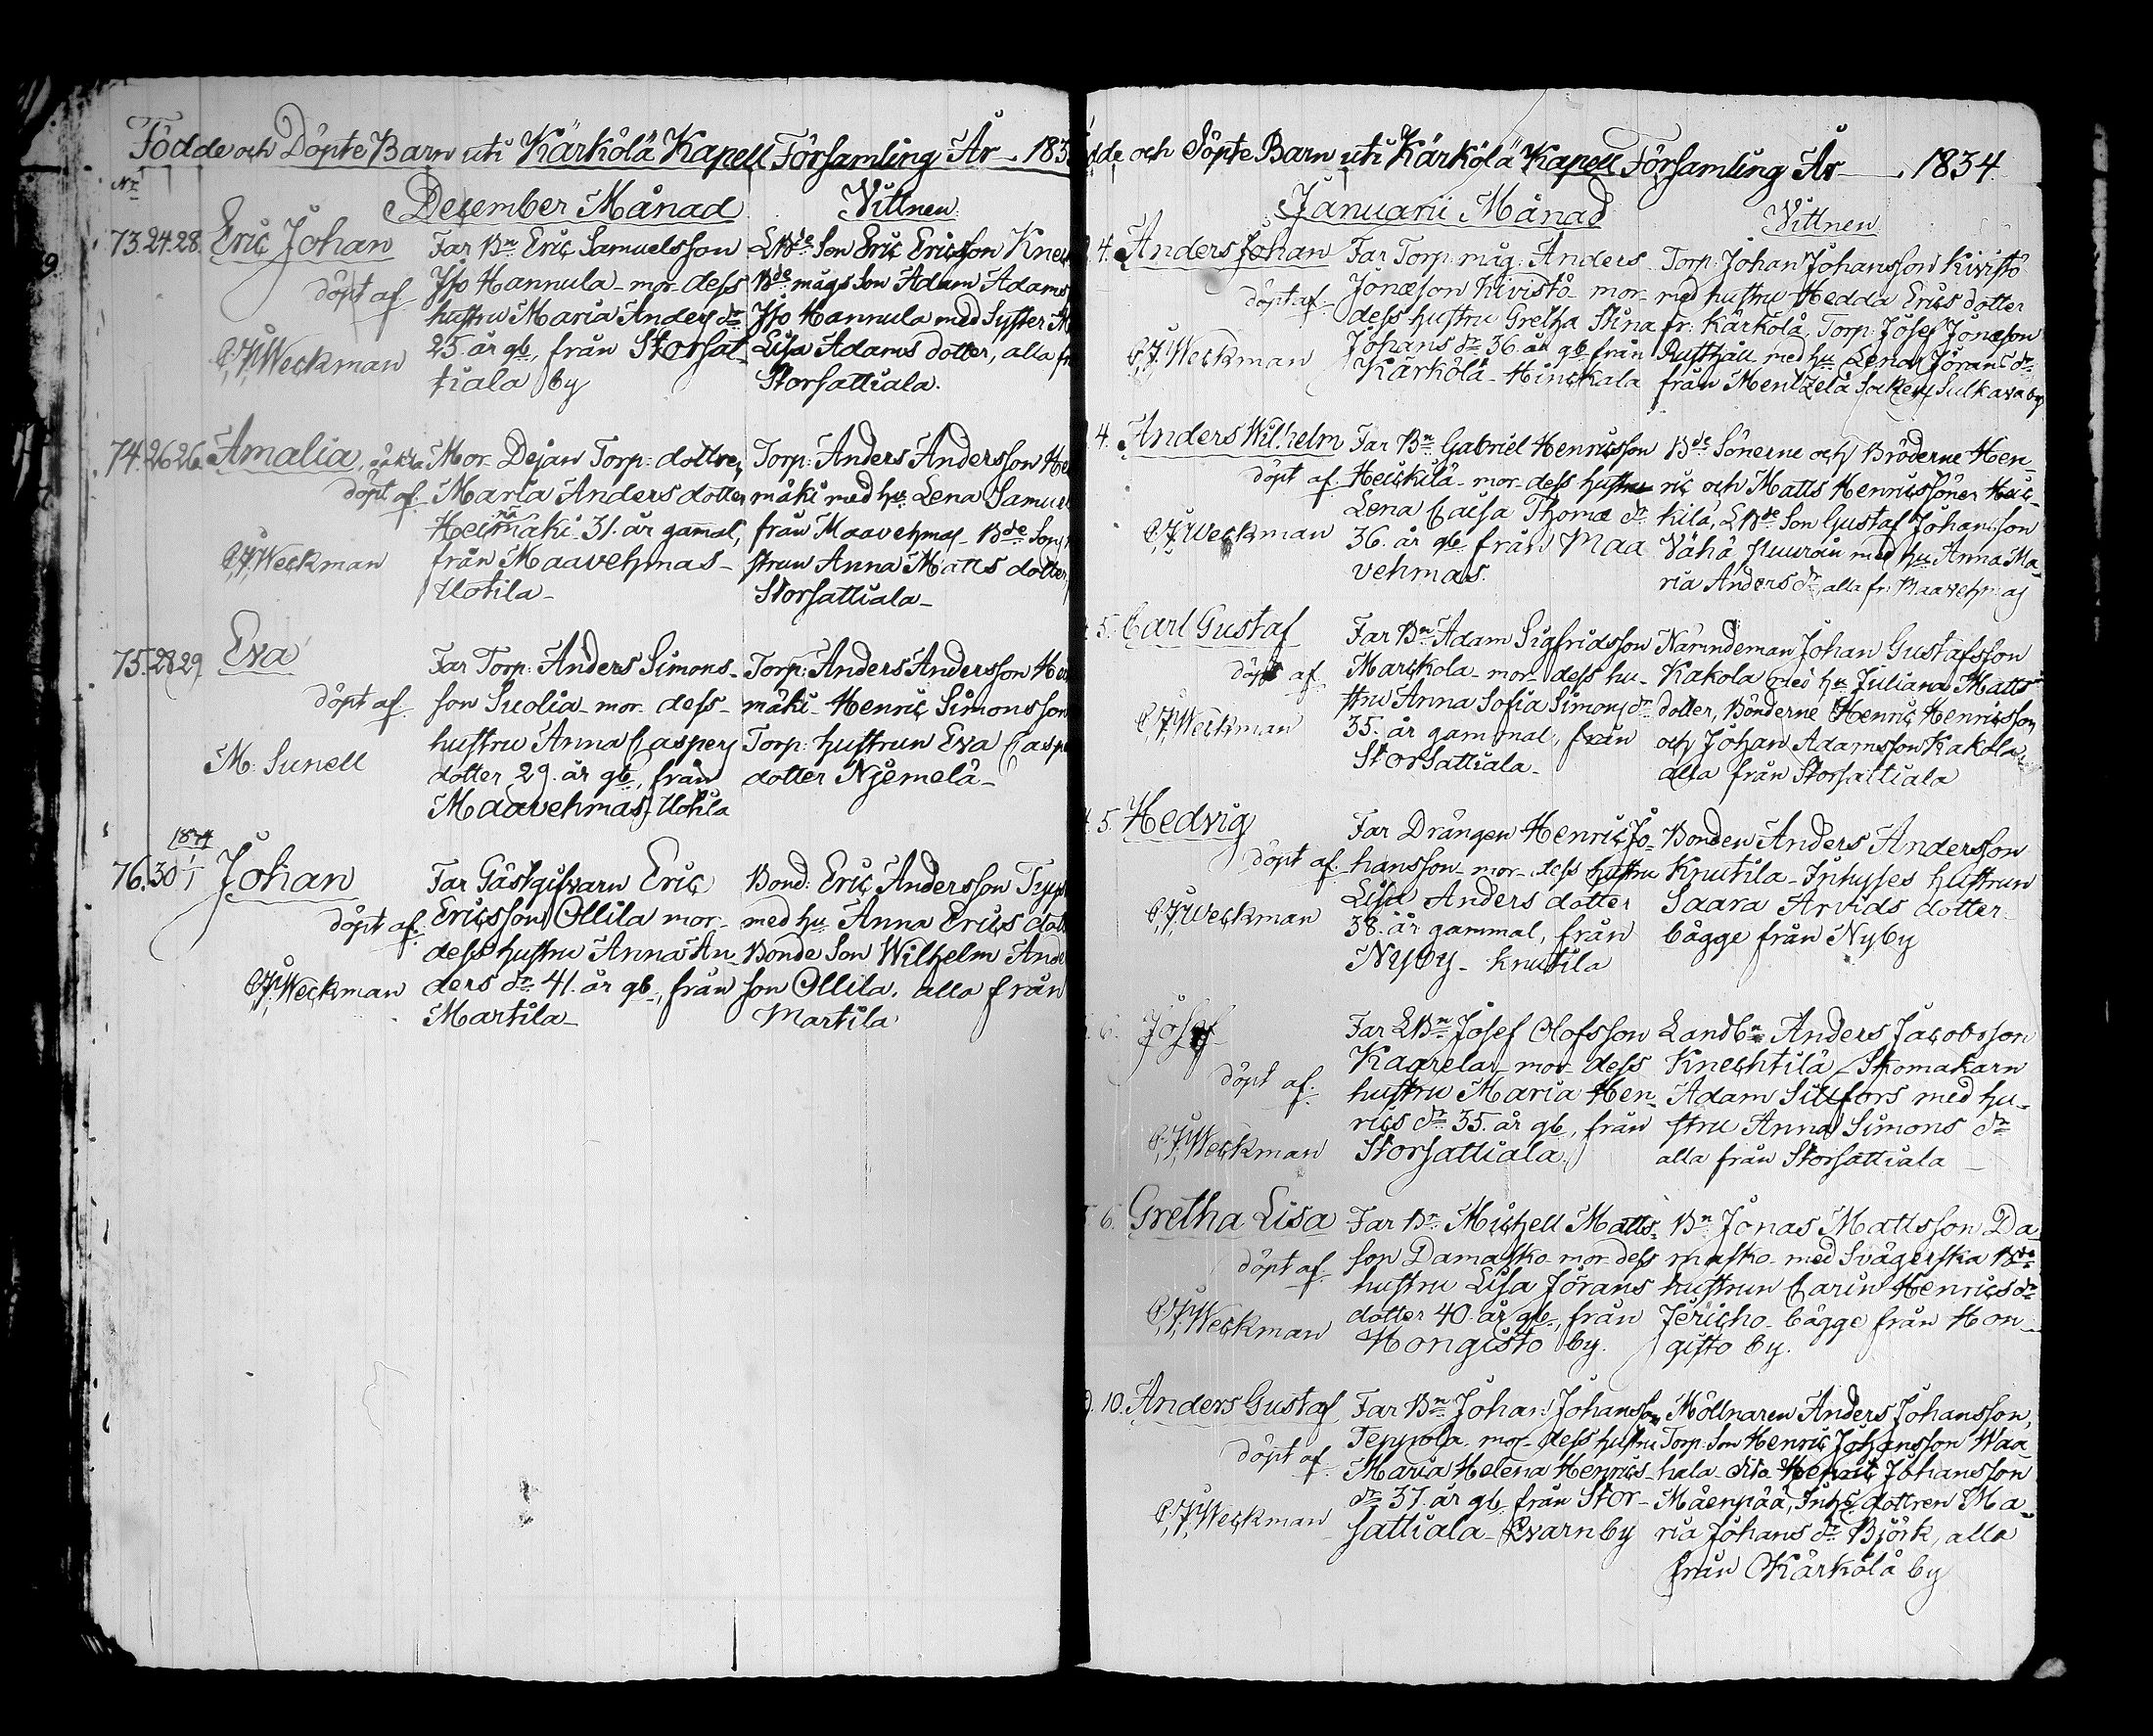 Födde och Döpte Barn uti Kärkölä Kapell Församling År 183
No
December Månad Vittnen
73. 24. 28. Eric Johan
döpt af
Weckman
Far Bn Eric Samuelsson
Iso Hannula mor dess
hustru Maria Anders dr
25. år gl, från Storsat-
tiala by
LBde Son Eric Ericsson
Bde mågs Son Adam Adams
Iso Hannula med Syster
Lisa Adams dotter, alla
Storsattiala.
74. 26 26. Amalia,
döpt af
Weckman
Mor Dejan Torp: dottren
Maria Anders dotter
31. år gammal,
från Maavehmas
Uotila
Torp: Anders Andersson
mäki med hu Lena Samu
från Maavehmas Bde Son
strun Anna Matts dotter
Storsattiala
75. 28 29 Eva
döpt af
M. Sunell
Far Torp: Anders Simons-
son Suolia mor dess
hustru Anna Caspers
dotter 29. år gl, från
Maavehmas, Uotila
Torp: Anders Andersson
mäki Henric Simonsson
Torp: hustrun Eva Casp
dotter Njemelä
1834
76. 30 1 Johan
döpt af
Weckman
Far Gästgifvarn Eric
Ericsson Ollila mor
dess hustru Anna An-
ders dr 41. år gl, från
Martila
Bond: Eric Andersson
med hu Anna Erics dot
Bonde Son Wilhelm Ande
son Ollila, alla från
Martila
dde och Döpte Barn uti Kärkölä Kapell Församling År 1834.
Januarii Månad
Vittnen
4. Anders Johan
döpt af
Weckman
Far Torp: måg: Anders
Jonæson Kivistö mor
dess hustru Gretha Stina
Johans dr 36. år gl från
Kärkölä Hinckala
Torp: Johan Johansson Kivistö
med hustru Hedda Erics dotter
fr: Kärkölä, Torp: Josef Jonæson
med hu Lena Jörans dr
från Mentzelä Socken Sulkava by
4. Anders Wilhelm
döpt af
Weckman
Far Bn Gabriel Henricsson
Heickilä mor dess hustru
Lena Caisa Thomæ dr
36. år gl från Maa
vehmas.
Bde Sönerne och Bröderne Hen-
ric och Matts Henricssöner Heic-
kilä, LBde Son Gustaf Johansson
Vähä med hu Anna Ma-
ria Anders dr, alla fr: Maavehmas
5. Carl Gustaf
döpt af
Weckman
Far Bn Adam Sigfridsson
Marckola mor dess hu-
stru Anna Sofia Simons dr
35. år gammal, från
Storsattiala
Nämndeman Johan Gustafsson
Kakola med hu Juliana Matts
dotter, Bönderne Henric Henricsson
och Johan Adamsson Kakola
alla från Storsattiala
5. Hedvig
döpt af
Weckman
Far Drängen Henric Jo-
hansson mor dess hustru
Lisa Anders dotter
38. år gammal, från
Nyby Knutila
Bonden Anders Andersson
Knutila Inhyses hustrun
Saara Arvids dotter
bägge från Nyby
6. Josef
döpt af
Weckman
Far LBn Josef Olofsson
Kaarela mor dess
hustru Maria Hen-
rics dr 35. år gl, från
Storsattiala
Landbn Anders Jacobsson
Knechtilä Skomakarn
Adam Silfors med hu-
stru Anna Simons dr
alla från Storsattiala
6. Gretha Lisa
döpt af
Weckman
Far Bn Michell Matts-
son Damasko mor dess
hustru Lisa Jörans
dotter 40. år gl, från
Hongisto by.
Bn Jonas Mattsson Da-
masko med Svägerska Bde
hustrun Carin Henrics dr
Jericho bägge från Hon-
gisto by.
10. Anders Gustaf
döpt af
Weckman
Far Bn Johan Johansson
Teppola mor dess hustru
Maria Helena Henrics
dr 37. år gl från Stor-
sattiala Qvarnby
Möllnaren Anders Johansson,
Torp: Son Henric Johansson Waa
hala dito Henric Johansson
Mäenpää, Inhs dottren Ma-
ria Johans dr Björk, alla
från Kärkölä by